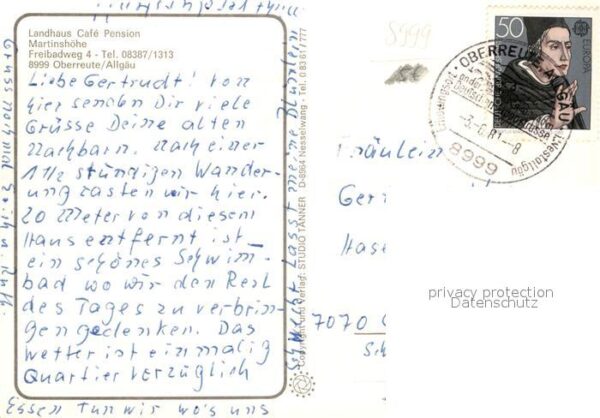 Landhaus Café Pension
Martinshöhe
Freibadweg 4 - Tel. 08387/1313
8999 Oberreute/Allgäu
Liebe Gertrudt! von
hier senden Dir viele
Grüsse Deine alten
Nachbarn. Nach einer
1 1/2 stündigen Wander-
ung rasten wir hier.
20 Meter von diesem
Haus entfernt ist
ein schönes Schwim-
bad wo wir den Rest
des Tages zu verbrin-
gen gedenken. Das
Wetter ist einmalig
Quartier verzüglich
Essen tun wir wo's uns
schmeckt lasst meine Blumen
nicht
Gruss nochmal
Copyright und Verlag: STUDIO TANNER D-8964 Nesselwang - Tel. 0 83 61 / 777
8999
50
EUROPA
OBERREUTE ALLGÄU
8999
Fräulein
Ger
Hase
7070
Sch
privacy protection
Datenschutz